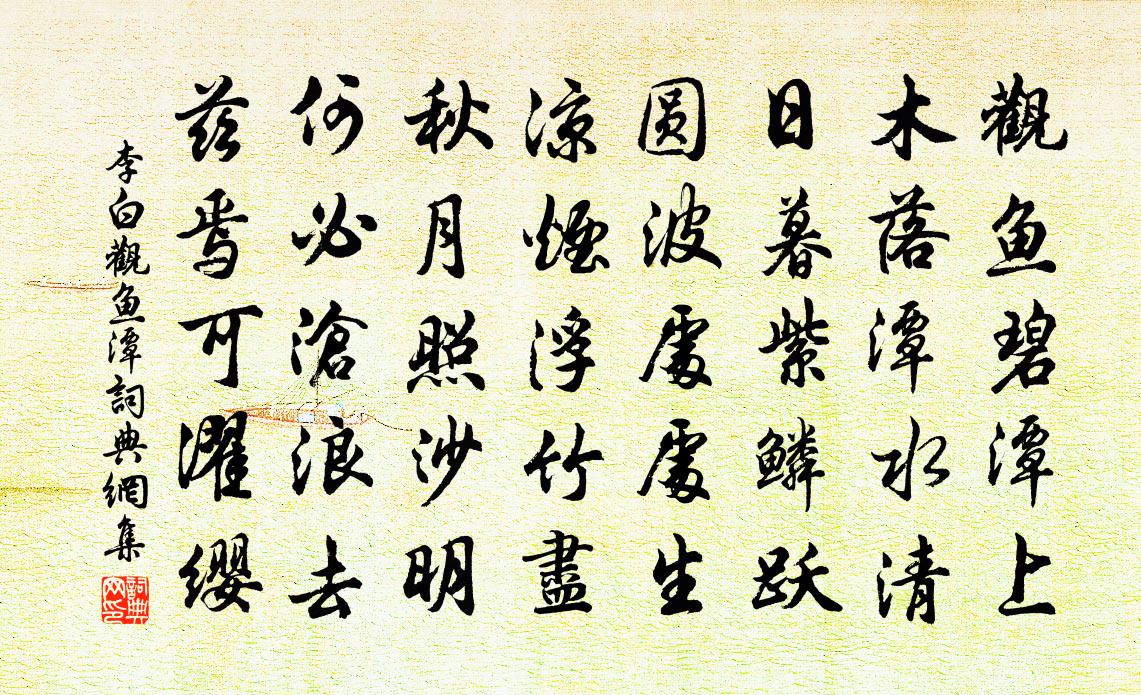 觀鱼碧潭上
木落潭水清
日暮紫鳞跃
圆波處處生
凉煙浮竹盡
秋月照沙明
何必滄浪去
茲焉可濯缨
李白觀鱼潭詞典網集
詞典网印